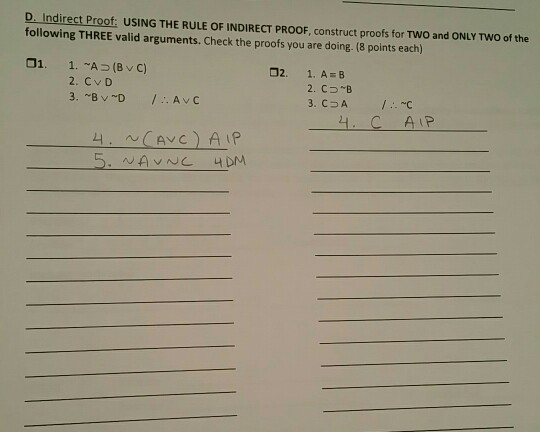 D. Indirect Proof: USING THE RULE OF INDIRECT PROOF, construct proofs for TWO and ONLY TWO of the
following THREE valid arguments. Check the proofs you are doing. (8 points each)
❒1. 1. ~A ⊃ (B v C)
2. C v D
3. ~B v ~D / ∴ A v C
4. ~(A v C) AIP
5. ~A v ~C 4 DM
❒2. 1. A ≡ B
2. C ⊃ ~B
3. C ⊃ A / ∴ ~C
4. C AIP